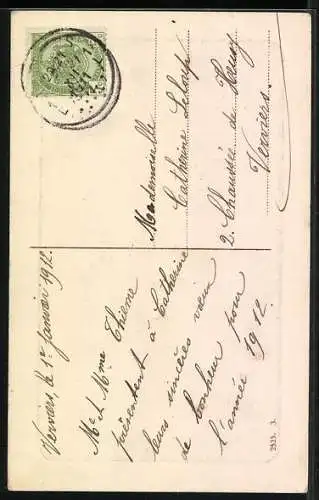 Verviers, le 1er Janvier 1912.
Mr & Mme Thieme
présentent à Catherine
leurs sincères vœux
de bonheur pour
l'année 1912.
Mademoiselle
Catherine
2. Chaussée de Heusy
Verviers.
2933. 3.